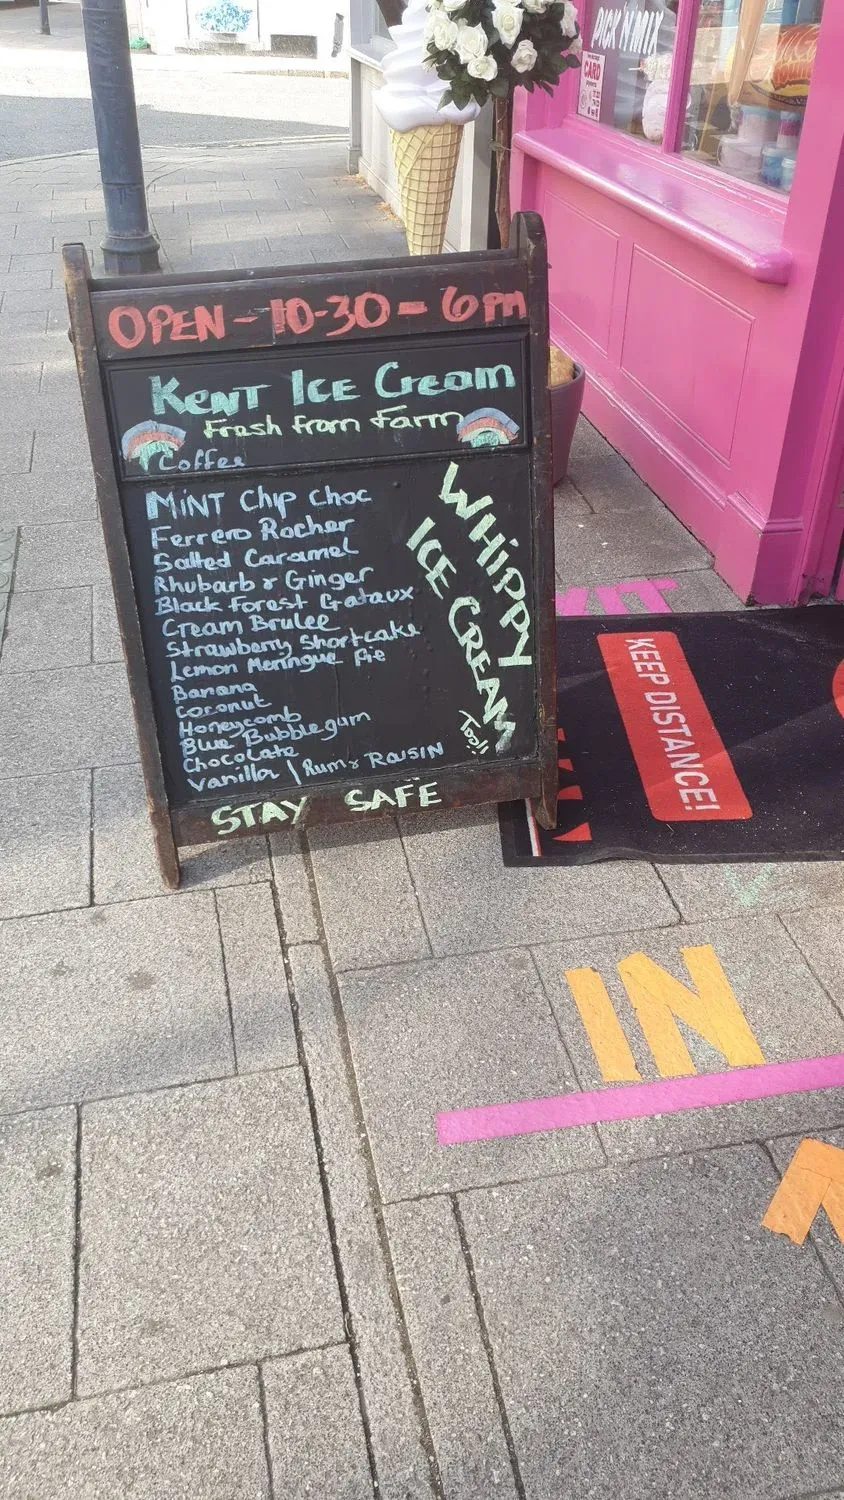 PICK 'N' MIX
CARD
OPEN - 10-30 - 6 PM
KENT ICE CREAM
Fresh from Farm
Coffee
MINT CHIP CHOC
Ferrero Rocher
Salted Caramel
Rhubarb & Ginger
Black Forest Gataux
Cream Brulee
Strawberry Shortcake
Lemon Meringue Pie
Banana
Coconut
Honeycomb
Blue Bubblegum
Chocolate
Vanilla / Rum & RAISIN
WHIPPY
ICE CREAM
Too!!
STAY SAFE
KEEP DISTANCE!
IN